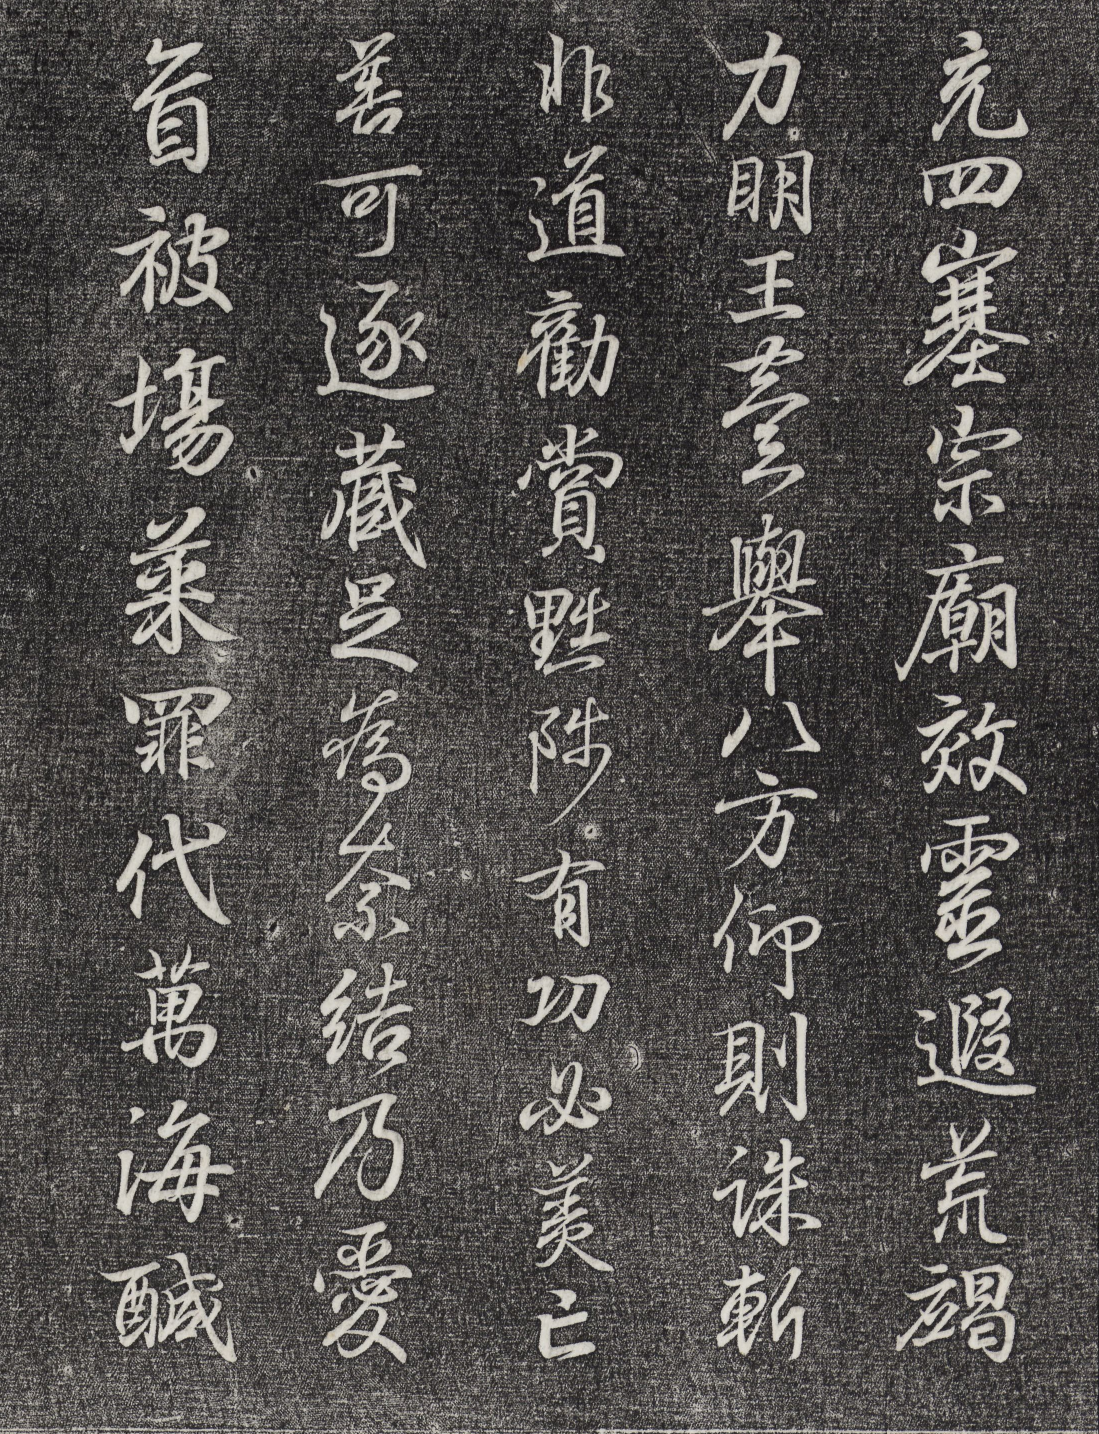 充四塞宗廟效靈遐荒竭
力明王壹舉八方仰則誅斬
非道勸賞黜陟有功必美亡
善可逐藏足為奈結乃愛
育被場菜罪代萬海鹹